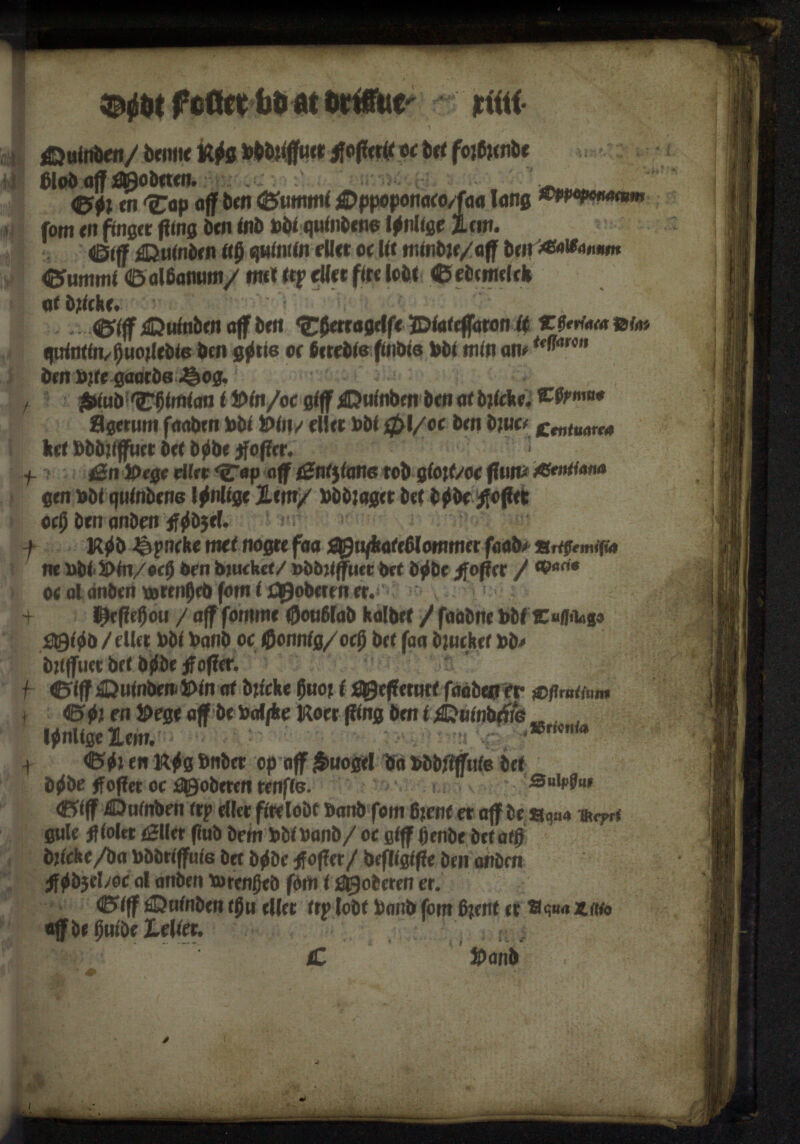 Dødt Foster hd at driffue xiiii.
Quinden/ denne Røg vddriffuer Fosterit oc det forbrende
blod aff Moderen.
Gør en Tap aff den Gummi Oppoponaco/saa lang Oppoponacum
som en finger sting den ind vdi quindens lønlige Lem.
Giff Quinden itz quintin eller oc lit mindre/aff den Galbanum
Gummi Galbanum/ met try eller fire lodt Gedemelck
at dricke.
Giff Quinden aff den Therragelse Diatessaron it Theriaca Dia-
quintin, huorledis den gøris oc beredis findis vdi min an- tessaron
den Vrte gaards Bog.
Siud Thimian i Vin/oc giff Quinden den at dricke. Thymus
Agerum saaden vdi Vin/ eller vdi Øl/oc den druc- Centuarea
ket vddriffuer det døde Foster.
En Vege eller Tap aff Entzians rod giort/oc stun- Gentiana
gen vdi quindens lønlige Lem/ vddrager det døde Foster
och den anden Fødzel.
Rød Byncke met nogre faa Muskateblommer saad- Arthemisia
ne vdi Vin/och den drucket/ vddriffuer det døde Foster / Macis
oc al anden vrenhed som i Moderen er.
Hestehou / aff somme Houblad kaldet / saadne vdi Tussilago
Miød / eller vdi Vand oc Honnig/och det saa drucket vd-
driffuer det døde Foster.
Giff Quinden Vin at dricke huor i Mesterurt saaden er Ostrutium
Gør en Vege aff de Valske Roer sting den i Quindens
lønlige Lem. Brionia
Gør en Røg vnder op aff Suogel da vddriffuis det
døde Foster oc Moderen renssis. Sulphur
Giff Quinden try eller fire lodt vand som brent er aff de Aqua Keyri
gule Fioler Eller siud dem vdi vand/ oc giff hende det ath
dricke/da vddriffuis det døde Foster/ desligiste den anden
Fødzel/oc al anden vrenhed som i Moderen er.
Giff Quinden thu eller try lodt vand som brent er Aqua Lilio
aff de huide Lelier.
C Vand